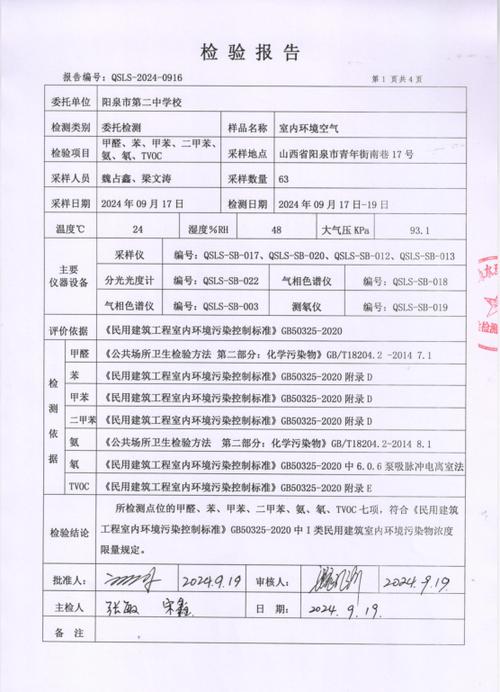 检验报告
报告编号：QSLS-2024-0916 第1页共4页
委托单位 阳泉市第二中学校
检测类别 委托检测 样品名称 室内环境空气
检验项目 甲醛、苯、甲苯、二甲苯、氨、氡、TVOC 采样地点 山西省阳泉市青年街南巷17号
采样人员 魏占鑫、梁文涛 采样数量 63
采样日期 2024年09月17日 检测日期 2024年09月17日-19日
温度℃ 24 湿度%RH 48 大气压KPa 93.1
主要仪器设备 采样仪 编号：QSLS-SB-017、QSLS-SB-020、QSLS-SB-012、QSLS-SB-013
分光光度计 编号：QSLS-SB-022 气相色谱仪 编号：QSLS-SB-018
气相色谱仪 编号：QSLS-SB-003 测氡仪 编号：QSLS-SB-019
评价依据 《民用建筑工程室内环境污染控制标准》GB50325-2020
检测依据 甲醛 《公共场所卫生检验方法 第二部分：化学污染物》GB/T18204.2-2014 7.1
苯 《民用建筑工程室内环境污染控制标准》GB50325-2020 附录D
甲苯 《民用建筑工程室内环境污染控制标准》GB50325-2020 附录D
二甲苯 《民用建筑工程室内环境污染控制标准》GB50325-2020 附录D
氨 《公共场所卫生检验方法 第二部分：化学污染物》GB/T18204.2-2014 8.1
氡 《民用建筑工程室内环境污染控制标准》GB50325-2020 中6.0.6泵吸脉冲电离室法
TVOC 《民用建筑工程室内环境污染控制标准》GB50325-2020 附录E
检验结论 所检测点位的甲醛、苯、甲苯、二甲苯、氨、氡、TVOC七项，符合《民用建筑
工程室内环境污染控制标准》GB50325-2020中I类民用建筑室内环境污染物浓度
限量规定。
批准人： 2024.9.19 审核人： 2024.9.19
主检人 张敏 宋鑫 日期： 2024.9.19.
备注